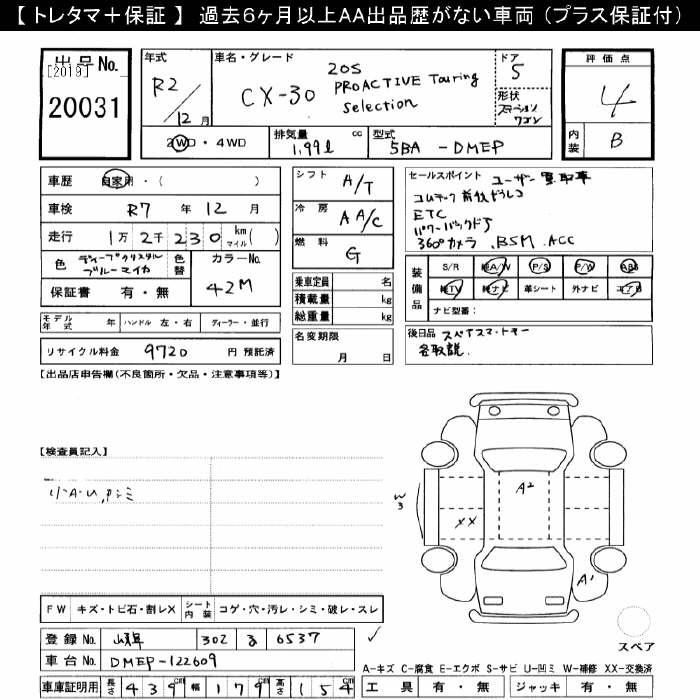 【 トレタマ＋保証 】 過去6ヶ月以上AA出品歴がない車両（プラス保証付）
出品No.
[2019]
20031
年式
R2／12月
車名・グレード
CX-30
20S
PROACTIVE Touring
Selection
ドア
5
形状
ステーション
ワゴン
評価点
4
内装
B
2WD・4WD
排気量 cc
1,99ℓ
型式
5BA - DMEP
車歴 自家用・（ ）
車検 R7 年 12 月
走行 1万 2千 2 3 0 km マイル( )
色 ディープクリスタル
ブルーマイカ
色替
カラーNo.
42M
保証書 有・無
シフト A/T
冷房 AA/C
燃料 G
乗車定員 名
積載量 kg
総重量 kg
セールスポイント ユーザー買取車
コムテック前後ドラレコ
ETC
パワーバックドア
360°カメラ .BSM .ACC
装備品
S/R 純A/W P/S P/W ABS
純TV 純ナビ 革シート 外ナビ エアB
ナビ型番：
モデル年式 年 ハンドル 左・右 ディーラー・並行
名変期限
月 日
後日品
各取説.
リサイクル料金 9720 円 預託済
【出品店申告欄(不良箇所・欠品・注意事項等)】
【検査員記入】
小A・U,Pシミ
W3
A2
XX
A1
FW キズ・トビ石・割レX シート内装 コゲ・穴・汚レ・シミ・破レ・スレ
登録No. 302 る 6537
車台No. DMEP-122609
車庫証明用 長さ 439cm 幅 179cm 高さ 154cm
スペア
A-キズ C-腐食 E-エクボ S-サビ U-凹ミ W-補修 XX-交換済
工具 有・無 ジャッキ 有・無